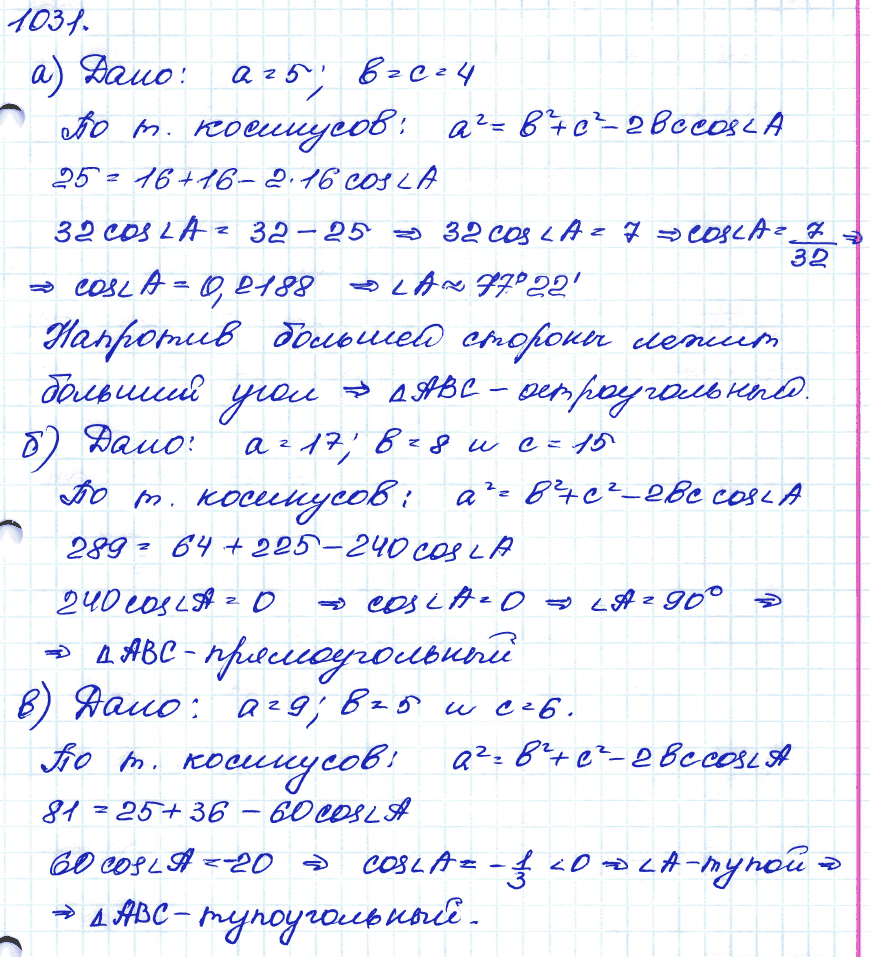 1031.
а) Дано: a = 5; b = c = 4
По т. косинусов: a² = b² + c² - 2bc cos∠A
25 = 16 + 16 - 2·16 cos∠A
32 cos∠A = 32 - 25 ⇒ 32 cos∠A = 7 ⇒ cos∠A = 7/32 ⇒
⇒ cos∠A = 0,2188 ⇒ ∠A ≈ 77°22'
Напротив большей стороны лежит
больший угол ⇒ △ABC - остроугольный.
б) Дано: a = 17; b = 8 и c = 15
По т. косинусов: a² = b² + c² - 2bc cos∠A
289 = 64 + 225 - 240 cos∠A
240 cos∠A = 0 ⇒ cos∠A = 0 ⇒ ∠A = 90° ⇒
⇒ △ABC - прямоугольный
в) Дано: a = 9; b = 5 и c = 6.
По т. косинусов: a² = b² + c² - 2bc cos∠A
81 = 25 + 36 - 60 cos∠A
60 cos∠A = -20 ⇒ cos∠A = -1/3 < 0 ⇒ ∠A - тупой ⇒
⇒ △ABC - тупоугольный.